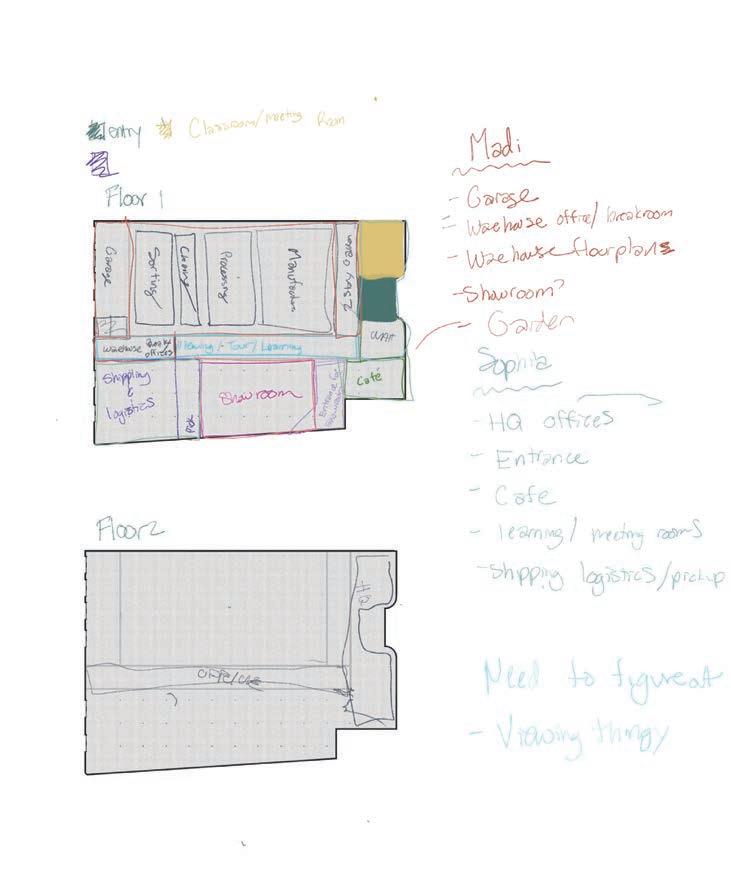 entry
Classroom/meeting Room
Floor 1
Garage
Sorting
Processing
Manufacture
2 Story Garden
Wait
Warehouse Break/offices
Viewing/Tour/Learning
Shipping & logistics
Pick
Showroom
Entrance for showroom
Café
Floor 2
HQ
Madi
- Garage
= Warehouse office/breakroom
- Warehouse floorplans
- Showroom?
- Garden
Sophila
- HQ offices
- Entrance
- Cafe
- learning/meeting rooms
- Shipping logistics/pickup
Need to figure out
- Viewing thingy